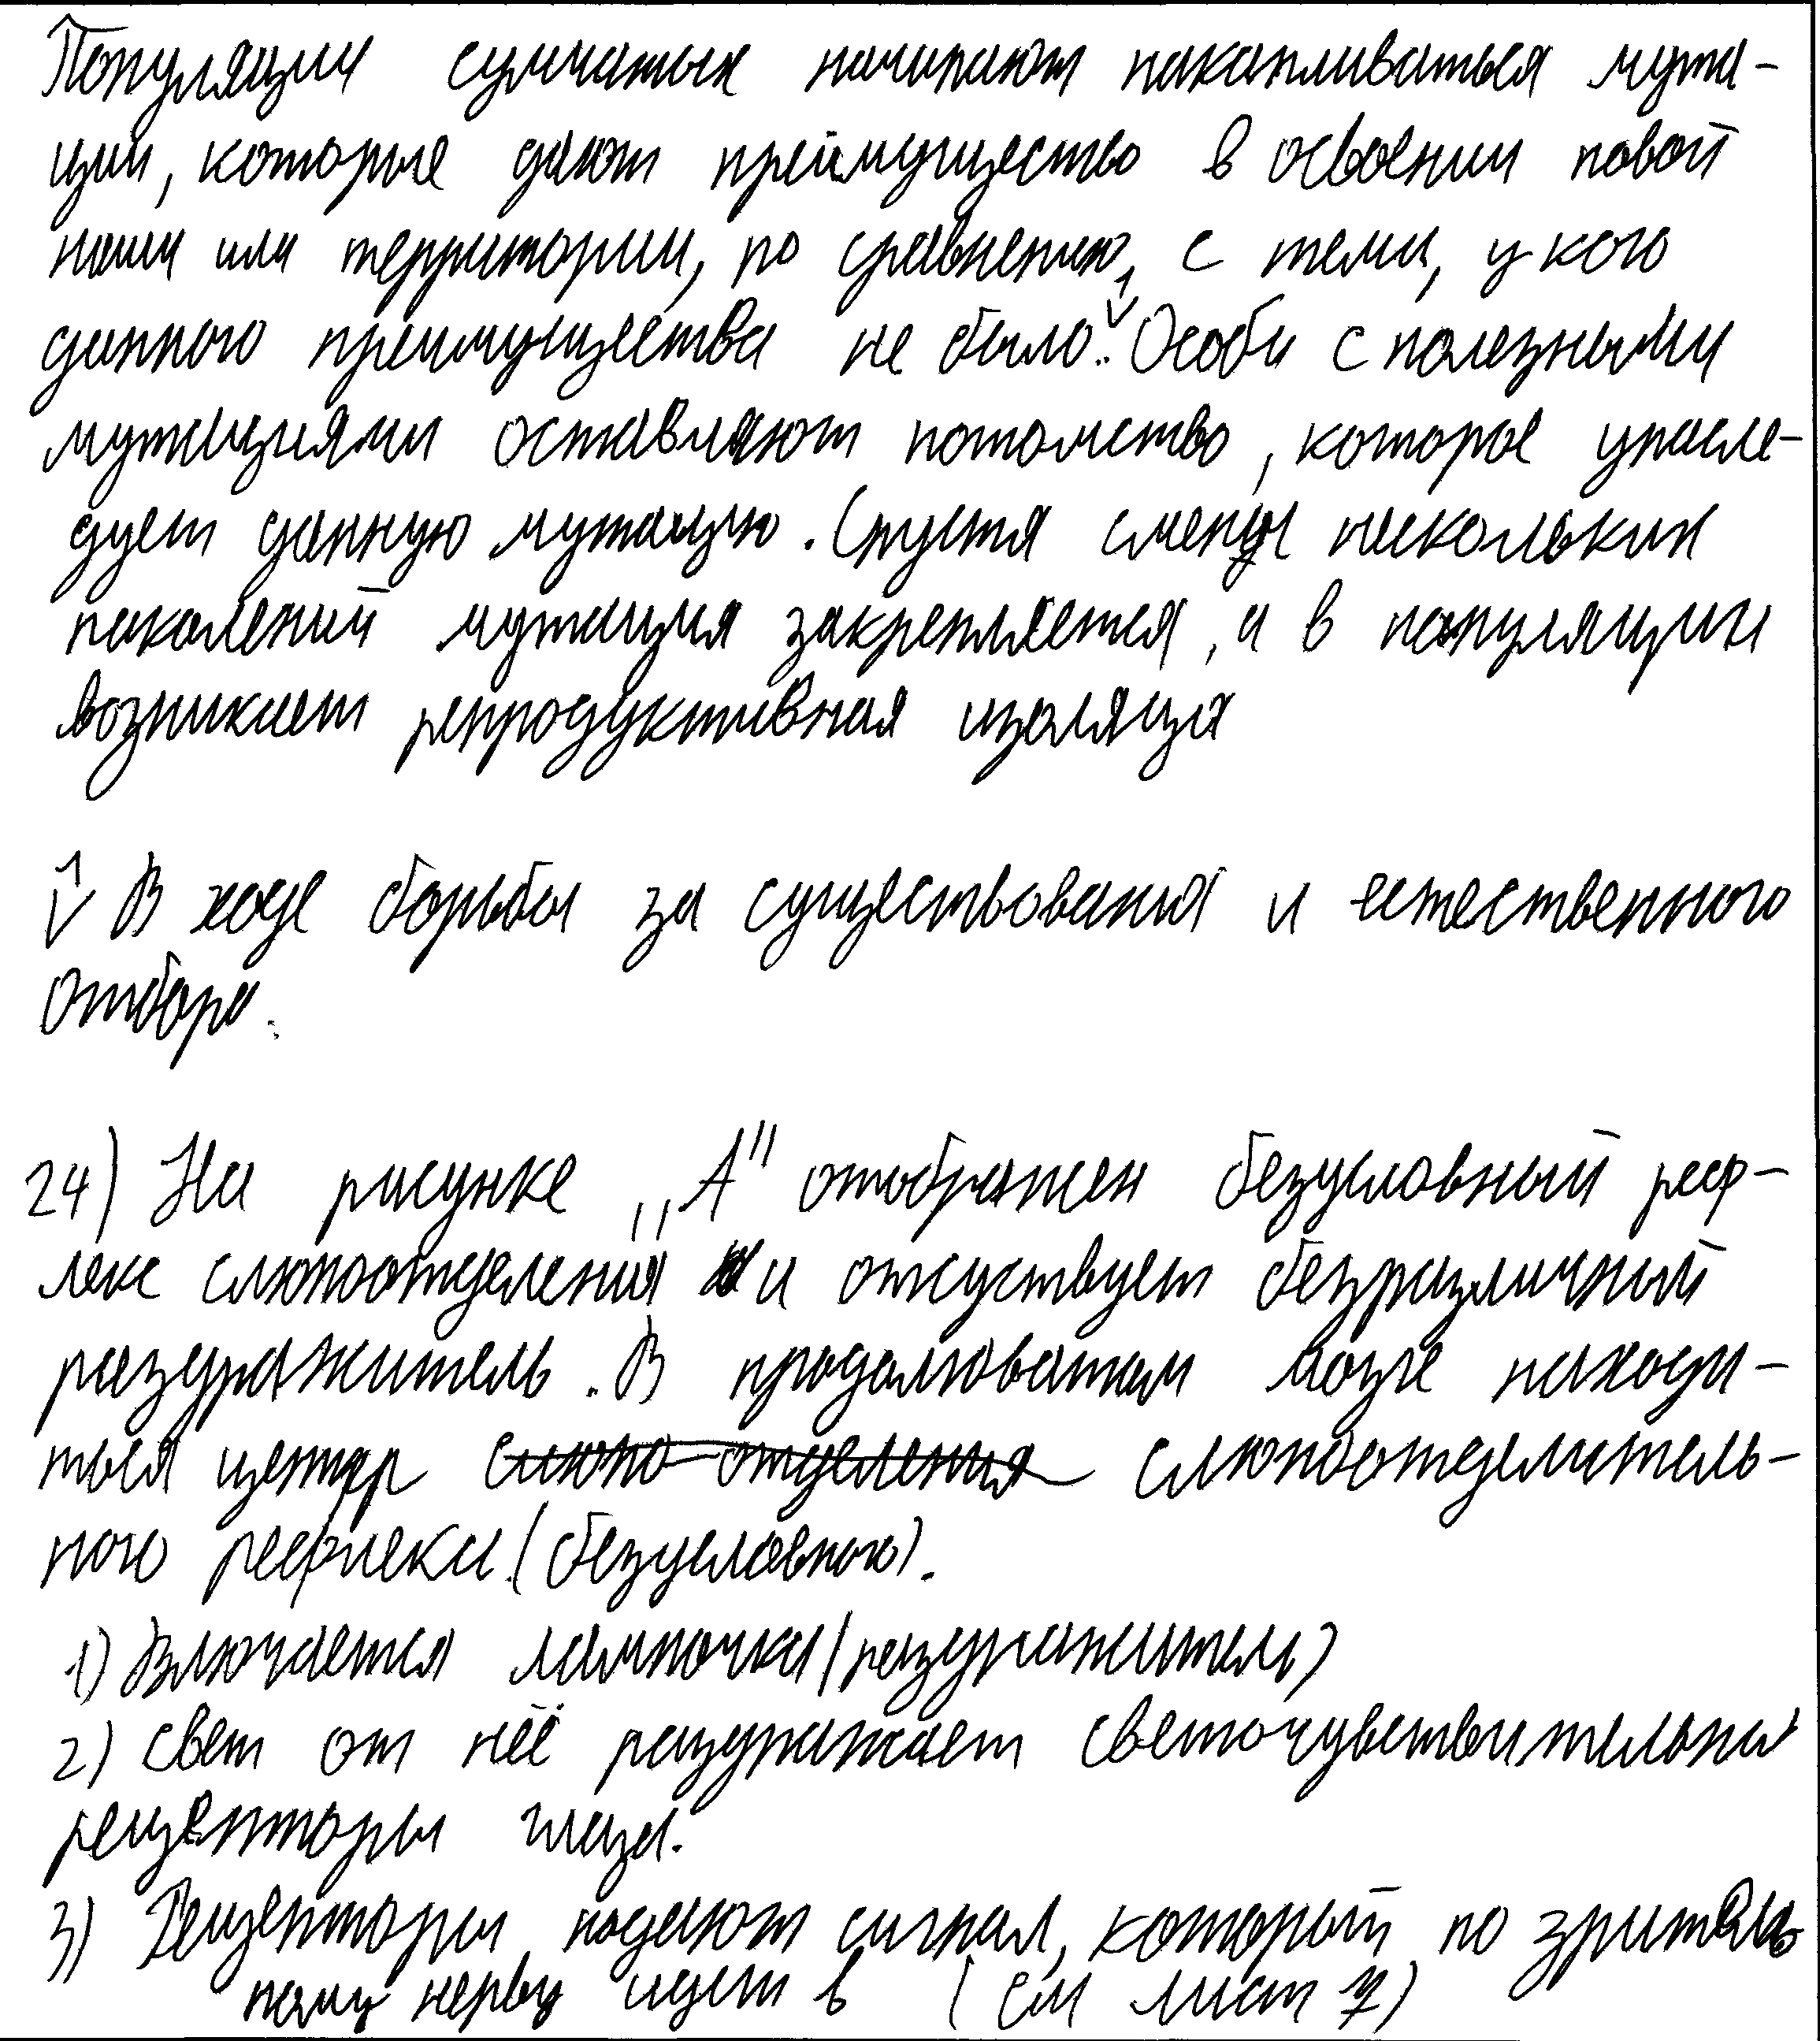 Популяции сумчатых начинают накапливаться мута-
ции, которые дают преимущество в освоении новой
ниши или территории, по сравнению, с теми, у кого
данного преимущества не было.¹∨ Особи с полезными
мутациями оставляют потомство, которое унасле-
дует данную мутацию. Спустя смены нескольких
поколений мутация закрепляется, а в популяции
возникает репродуктивная изоляция
1∨ В ходе борьбы за существования и естественного
отбора.
24) На рисунке ,,А" отображен безусловный реф-
лекс слюноотделения и отсуствует безразличный
раздражитель. В продолговатом мозге находи-
ться центр слюноотделитель-
ного рефлекса (безусловного).
1) Включается лампочка (раздражитель)
2) Свет от неё раздражает светочувствительны
рецепторы глаза.
3) Рецепторы подают сигнал, который по зритель
ному нерву идет в (см лист 7)